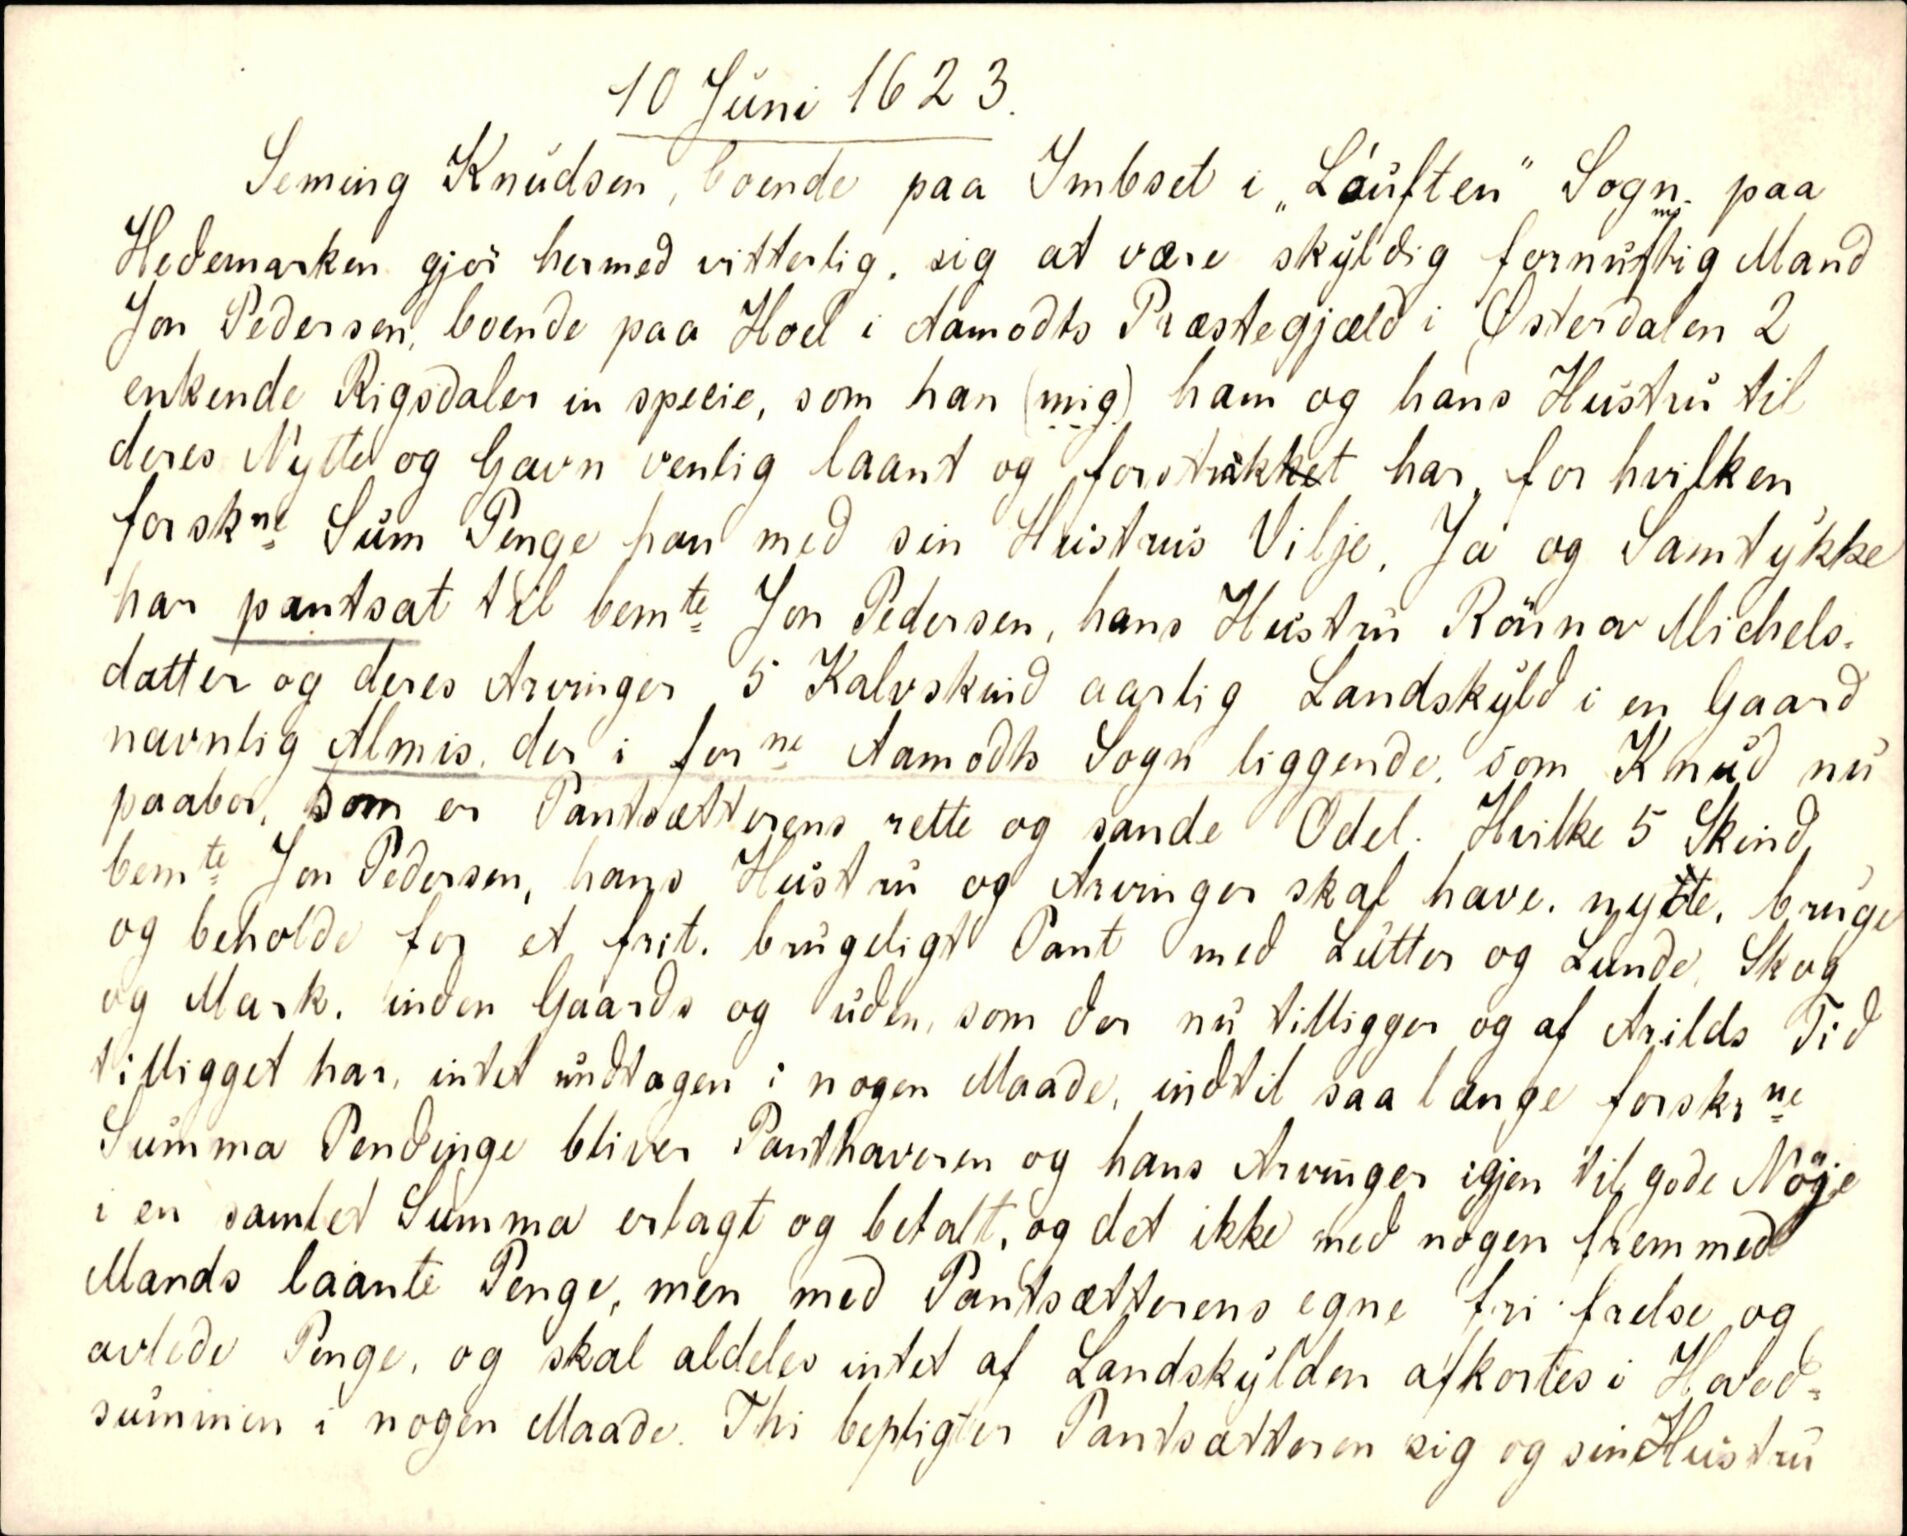 10 Juni 1623.
Seming Knudsen, boende paa Imbset i „Løuften" Sogn paa
Hedemarken gjör hermed vitterlig, sig at være skyldig fornumftig Mand
Jon Pedersen, boende paa Hoel i Aamodts Præstegjæld i Østerdalen 2
enkende Rigsdaler in specie, som han (mig) ham og hans Hustru til
deres Nytte og Gavn venlig laant og forstrakt har, for hvilken
forskne Sum Penge han med sin Hustrus Vilje, Ja og Samtykke
har pantsat til bemte Jon Pedersen, hans Hustru Rönnov Michels-
datter og deres Arvinger 5 Kalvskind aarlig Landskyld i en Gaard
navnlig Almis, der i forne Aamodts Sogn liggende, som Knud nu
paabor, som er Pantsætterens rette og sande Odel. Hvilke 5 Skind
bemte Jon Pedersen, hans Hustru og Arvinger skal have, nytte, bruge
og beholde for et frit, brugeligt Pant med Lutter og Lunde, Skog
og Mark, inden Gaards og uden, som der nu tilligger og af Arilds Tid
tilligget har, intet undtagen i nogen Maade, indtil saa længe forskrne
Summa Pendinge bliver Panthaveren og hans Arvinger igjen til gode Nöje
i en samlet Summa erlagt og betalt, og det ikke med nogen fremmed
Mands laante Penge, men med Pantsætterens egne fri frelse og
avlede Penge, og skal aldeles intet af Landskylden afkortes i Hoved-
summen i nogen Maade. Thi bepligter Pantsætteren sig og sin Hustru